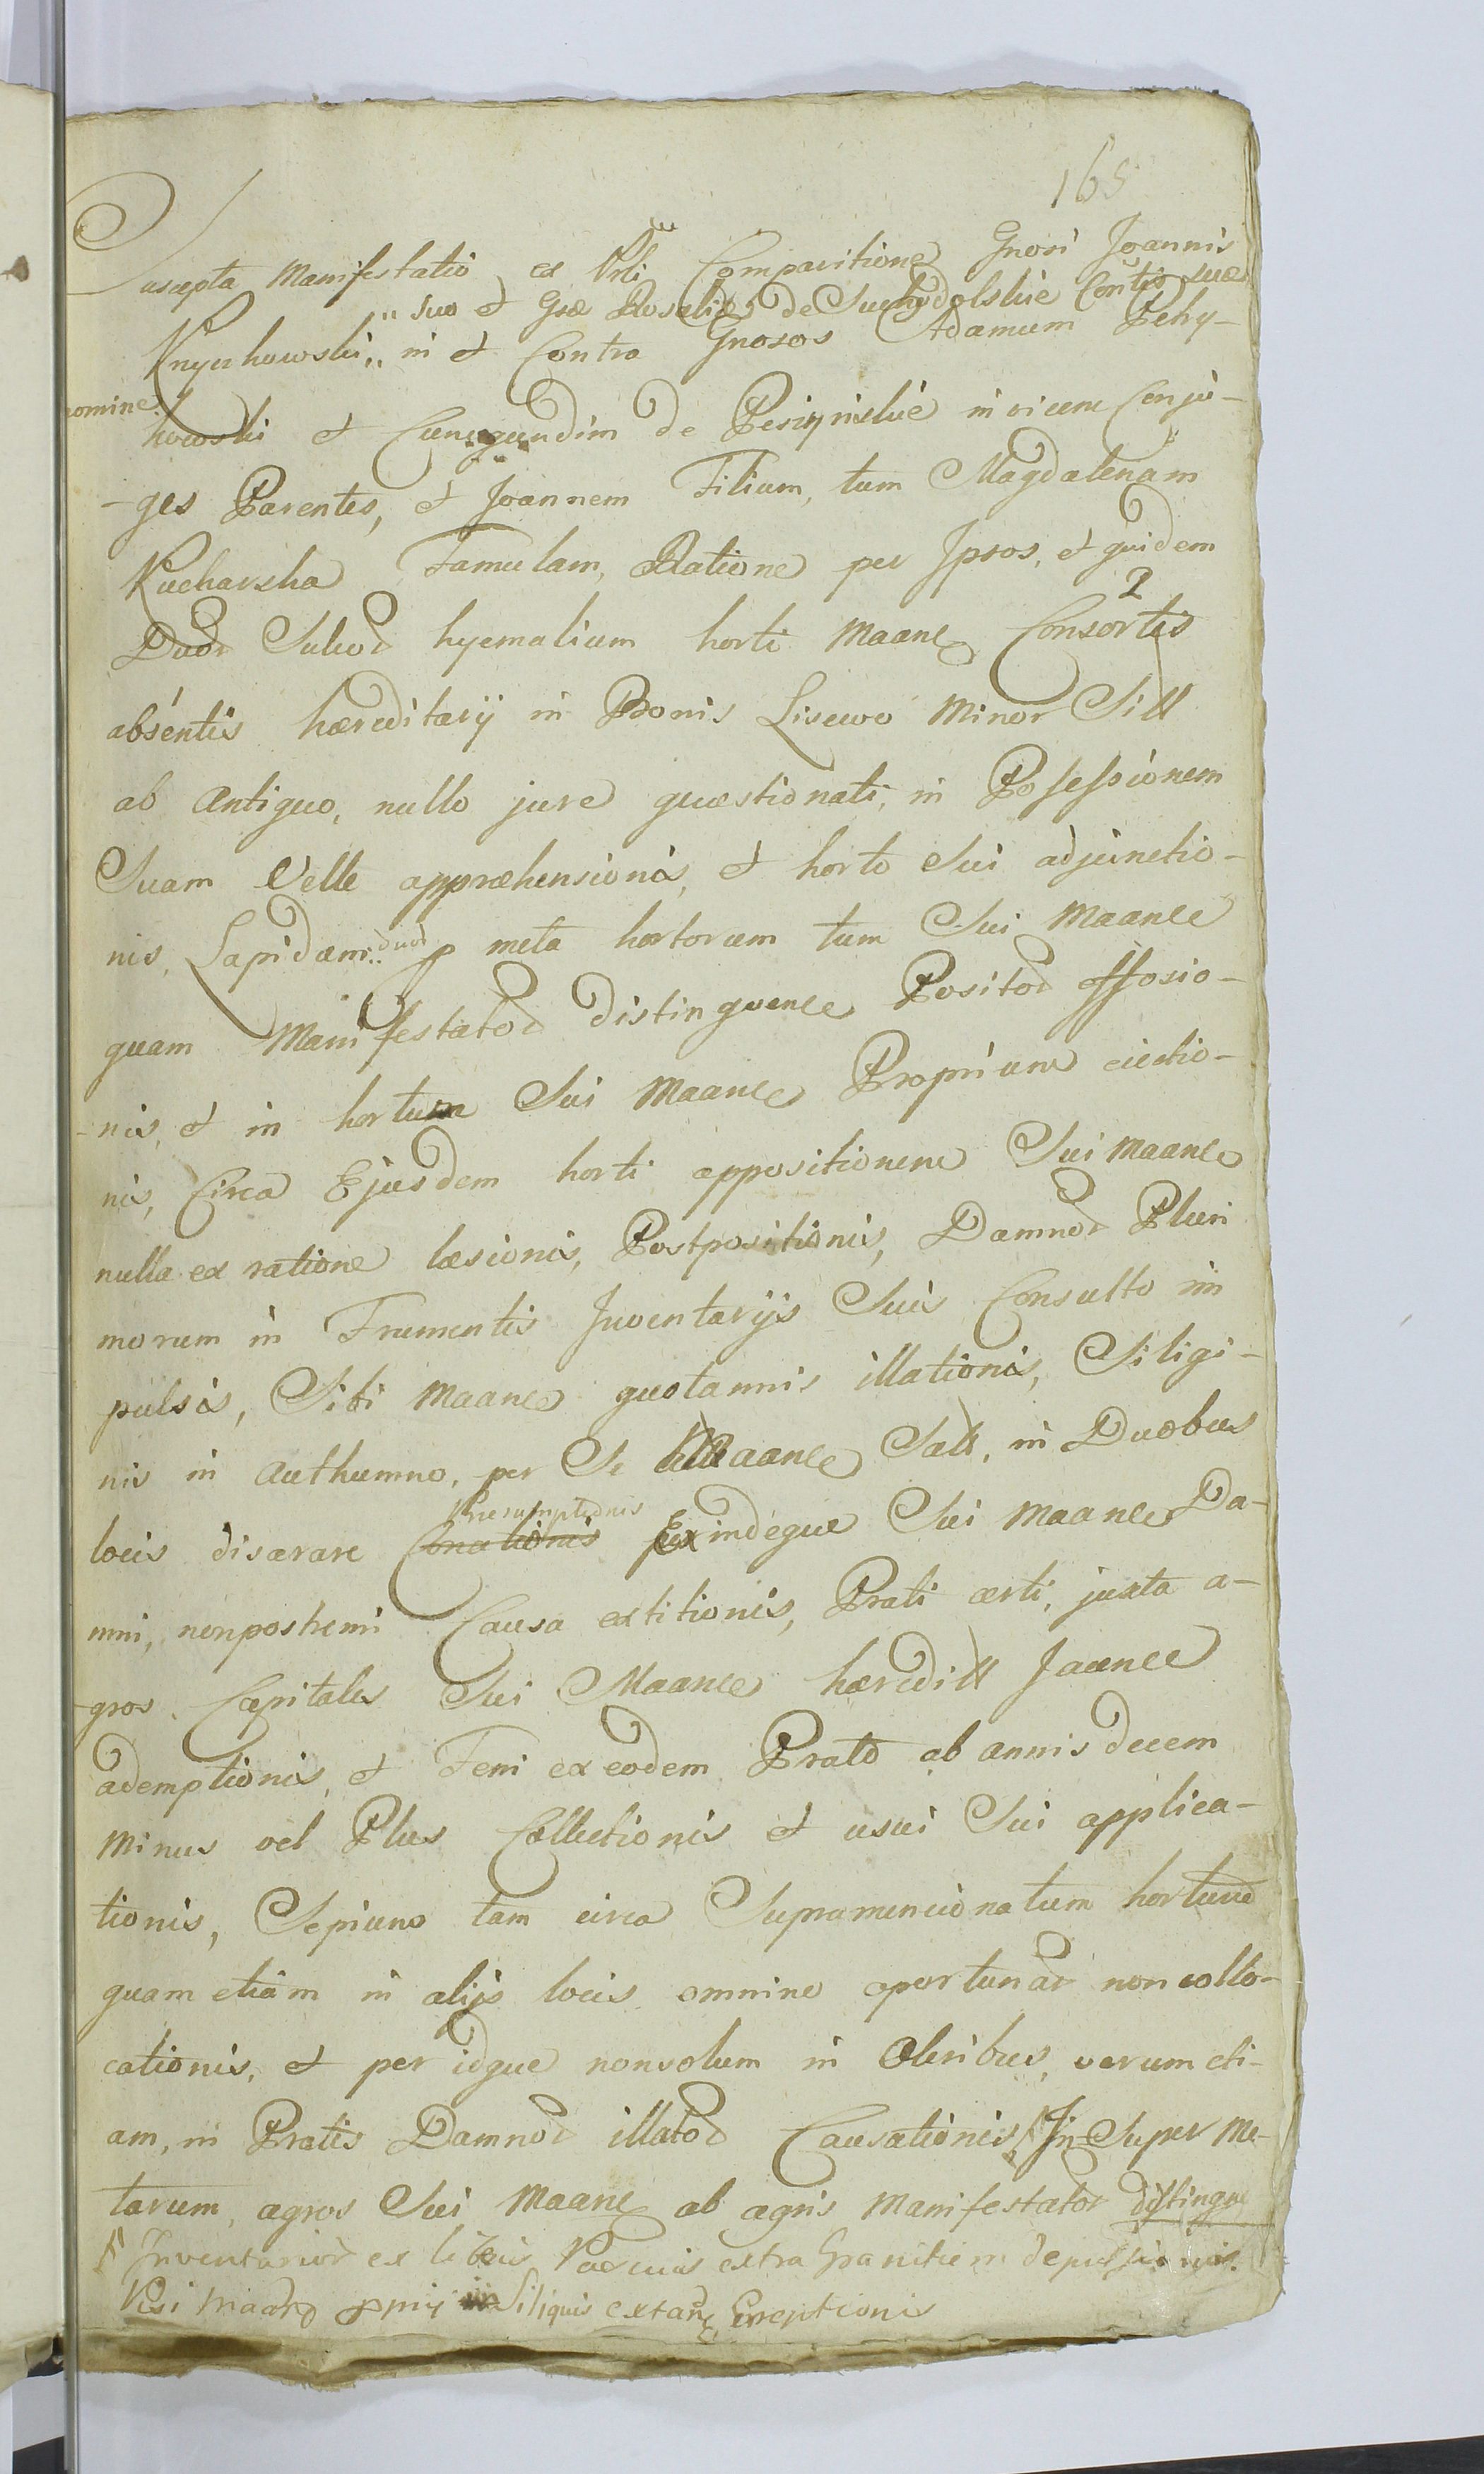 165
Suscepta Manifestatio ex Prli Comparitione Gnosi Joannis
suo et Gsæ Rosaliæ de Suchodolskie Contis suæ
Knychowski in et Contra Gnosos Adamum Pehy-
nomine
howski et Cunegundim de Pesignislie invicem Conju-
-ges Parentes, et Joannem Filium, tum Magdalenam
Kucharska Famulam, Ratione per Ipsos, et quidem
2
Duor Sulcor hyemalium horti Maanle Consortis
absentis hæreditarij in Bonis Lisewo Minor Sitt
ab Antiquo, nullo jure quæstionati, in Possessionem
Suam Velle appræhensionis, et horto Sui adjunctio-
nis, Lapidum duor p meta hortorum tum Sui Maanle
quam Manifestator distinguenle Positor effosio-
-nis, et in hortum Sui Maanle Proprium eiectio-
nis, Circa Ejusdem horti appositionem Sui Maanle
nulla ex ratione læsionis, Postpositionis, Damnor Pluri
morum in Frumentis Inventarijs Suis Consulto im
pulsis, Sibi Maanle quotannis illationis, Siligi-
nis in Authumno, per Se Maanle Satt, in Duobus
Præsumptionis
locis disarare Conationis Exindeque Sui Maanle Da-
mni, nonpostremi Causa extitionis, Prati arti, juxta a-
-gros Capitales Sui Maanle hæreditt Jacenle
ademptionis, et Feni ex eodem Prato ab annis decem
Minus vel Plus Collectionis et usui Sui applica-
tionis, Sepium tam circa Supramencionatum hortum
quam etiam in alijs locis omnino oportunar non collo-
cationis, et per idque nonsolum in Oleribus, verum eti-
am, in Pratis Damnor illator Causationis In Super Me-
tarum, agros Sui Maanle ab agris Manifestator distingue
Inventarior ex libris Pascuis extra Granitiem depulsionis.
Pisi Maanle pprij Siliquis extanle Ereptionis